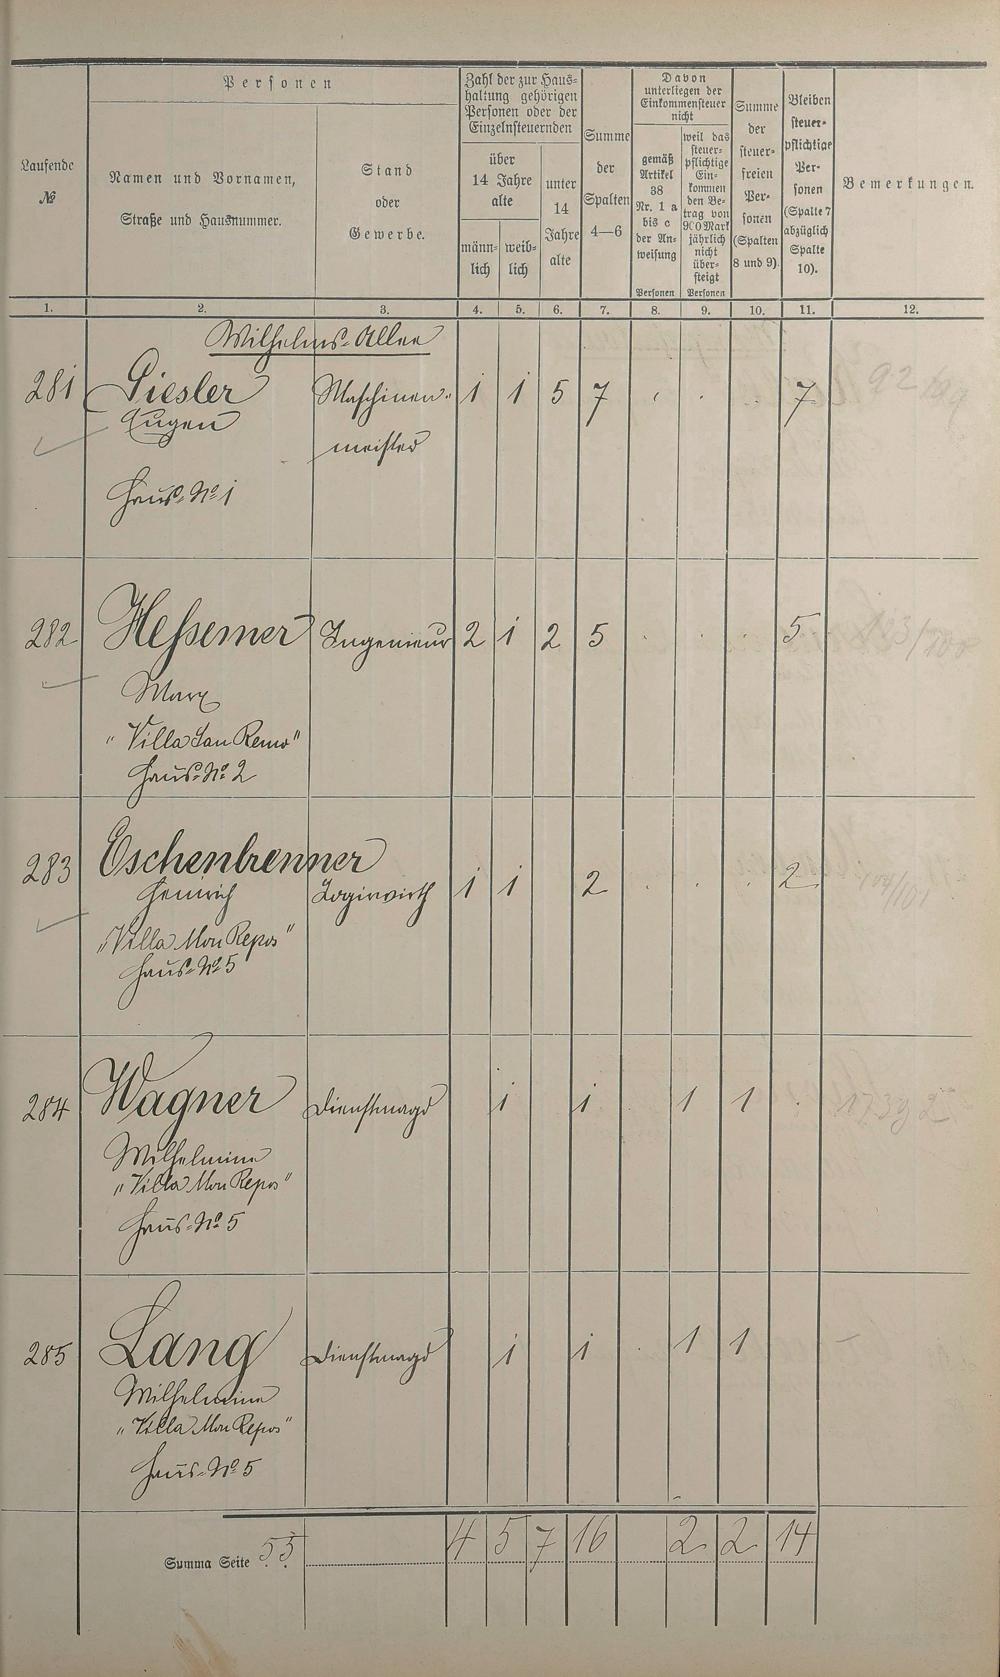 Personen
Zahl der zur Haus-
haltung gehörigen
Personen oder der
Einzelnsteuernden
Davon
unterliegen der
Einkommensteuer
nicht
Laufende
№
Namen und Vornamen,
Straße und Hausnummer.
Stand
oder
Gewerbe.
über
14 Jahre
alte
männ-
lich
weib-
lich
unter
14
Jahre
alte
Summe
der
Spalten
4—6
gemäß
Artikel
38
Nr. 1 a
bis c
der An-
weisung
Personen
weil das
steuer-
pflichtige
Ein-
kommen
den Be-
trag von
900 Mark
jährlich
nicht
über-
steigt
Personen
Summe
der
steuer-
freien
Per-
sonen
(Spalten
8 und 9).
Bleiben
steuer-
pflichtige
Per-
sonen
(Spalte 7
abzüglich
Spalte
10).
Bemerkungen.
1. 2. 3. 4. 5. 6. 7. 8. 9. 10. 11. 12.
Wilhelms-Allee
281 Giesler Maschinen- 1 1 5 7 . . . 7
Eugen meister
Haus-№ 1
282 Hessemer Ingenieur 2 1 2 5 . . . 5
Marx
"Villa San Remo"
Haus-№ 2
283 Eschenbrenner
Heinrich Logirwirth 1 1 2 . . . 2
"Villa Mon Repos"
Haus-№ 5
284 Wagner Dienstmagd 1 1 . 1 1 .
Wilhelmine
"Villa Mon Repos"
Haus-№ 5
285 Lang Dienstmagd 1 1 . 1 1
Wilhelmine
"Villa Mon Repos"
Haus-№ 5
Summa Seite 55 4 5 7 16 2 2 14